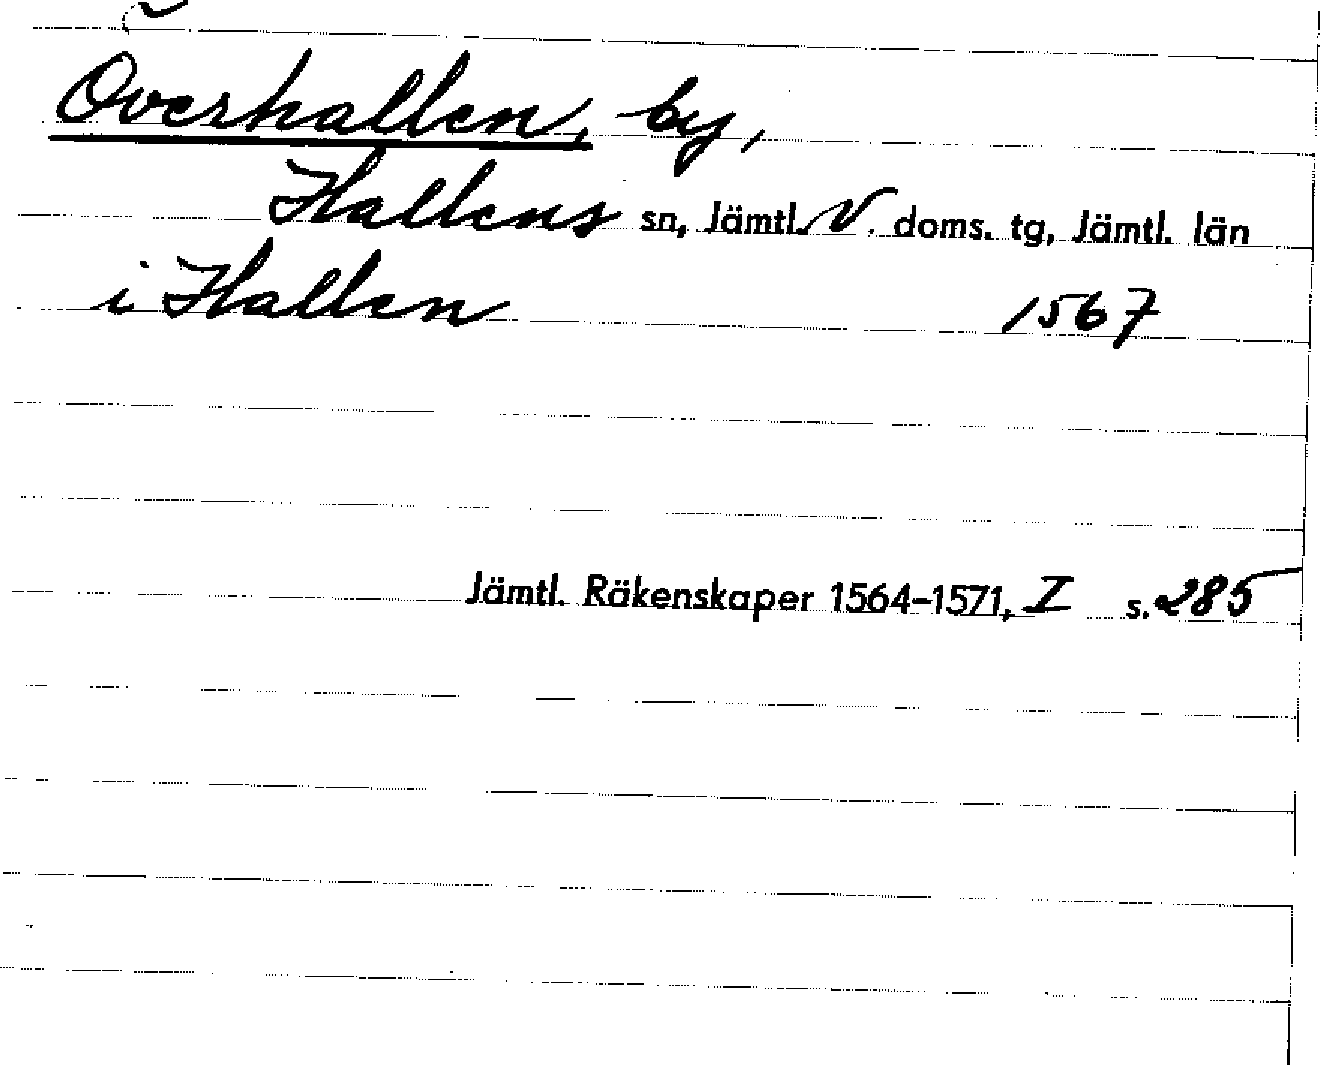 Överhallen, by,
Hallens sn, Jämtl. V. doms. tg, Jämtl. län
i Hallen 1567
Jämtl. Räkenskaper 1564-1571, I s. 285